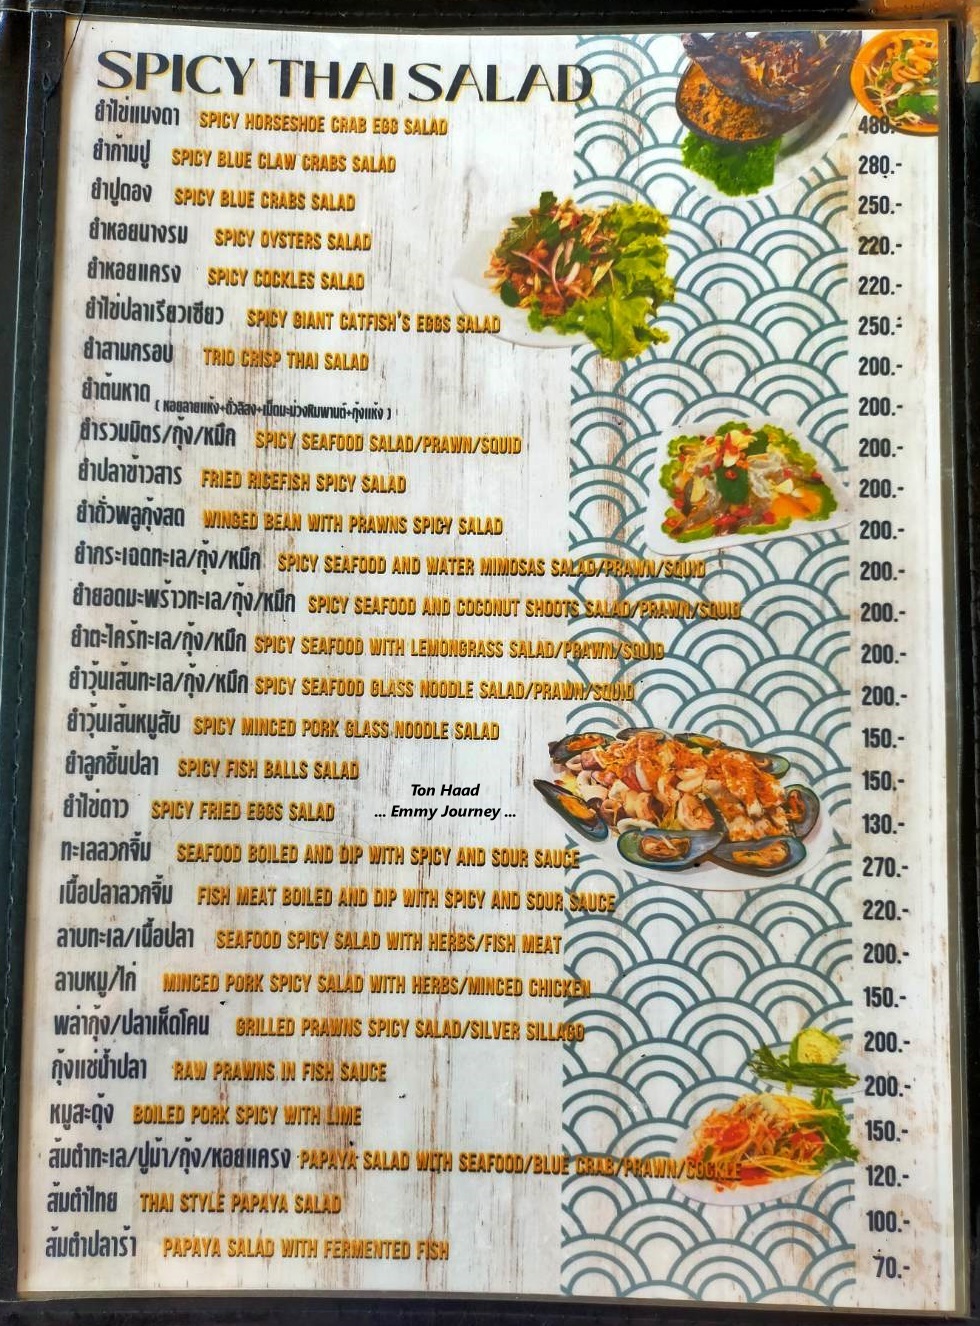 SPICY THAI SALAD
ยำไข่แมงดา SPICY HORSESHOE CRAB EGG SALAD 480.-
ยำก้ามปู SPICY BLUE CLAW CRABS SALAD 280.-
ยำปูดอง SPICY BLUE CRABS SALAD 250.-
ยำหอยนางรม SPICY OYSTERS SALAD 220.-
ยำหอยแครง SPICY COCKLES SALAD 220.-
ยำไข่ปลาเรียวเซียว SPICY GIANT CATFISH'S EGGS SALAD 250.-
ยำสามกรอบ TRIO CRISP THAI SALAD 200.-
ยำต้นหาด ( หอยลายแห้ง+ถั่วลิสง+เม็ดมะม่วงหิมพานต์+กุ้งแห้ง ) 200.-
ยำรวมมิตร/กุ้ง/หมึก SPICY SEAFOOD SALAD/PRAWN/SQUID 200.-
ยำปลาข้าวสาร FRIED RICEFISH SPICY SALAD 200.-
ยำถั่วพลูกุ้งสด WINGED BEAN WITH PRAWNS SPICY SALAD 200.-
ยำกระเฉดทะเล/กุ้ง/หมึก SPICY SEAFOOD AND WATER MIMOSAS SALAD/PRAWN/SQUID 200.-
ยำยอดมะพร้าวทะเล/กุ้ง/หมึก SPICY SEAFOOD AND COCONUT SHOOTS SALAD/PRAWN/SQUID 200.-
ยำตะไคร้ทะเล/กุ้ง/หมึก SPICY SEAFOOD WITH LEMONGRASS SALAD/PRAWN/SQUID 200.-
ยำวุ้นเส้นทะเล/กุ้ง/หมึก SPICY SEAFOOD GLASS NOODLE SALAD/PRAWN/SQUID 200.-
ยำวุ้นเส้นหมูสับ SPICY MINCED PORK GLASS NOODLE SALAD 150.-
ยำลูกชิ้นปลา SPICY FISH BALLS SALAD 150.-
Ton Haad
... Emmy Journey ...
ยำไข่ดาว SPICY FRIED EGGS SALAD 130.-
ทะเลลวกจิ้ม SEAFOOD BOILED AND DIP WITH SPICY AND SOUR SAUCE 270.-
เนื้อปลาลวกจิ้ม FISH MEAT BOILED AND DIP WITH SPICY AND SOUR SAUCE 220.-
ลาบทะเล/เนื้อปลา SEAFOOD SPICY SALAD WITH HERBS/FISH MEAT 200.-
ลาบหมู/ไก่ MINCED PORK SPICY SALAD WITH HERBS/MINCED CHICKEN 150.-
พล่ากุ้ง/ปลาเห็ดโคน GRILLED PRAWNS SPICY SALAD/SILVER SILLAGO 200.-
กุ้งแช่น้ำปลา RAW PRAWNS IN FISH SAUCE 200.-
หมูสะดุ้ง BOILED PORK SPICY WITH LIME 150.-
ส้มตำทะเล/ปูม้า/กุ้ง/หอยแครง PAPAYA SALAD WITH SEAFOOD/BLUE CRAB/PRAWN/COCKLE 120.-
ส้มตำไทย THAI STYLE PAPAYA SALAD 100.-
ส้มตำปลาร้า PAPAYA SALAD WITH FERMENTED FISH 70.-